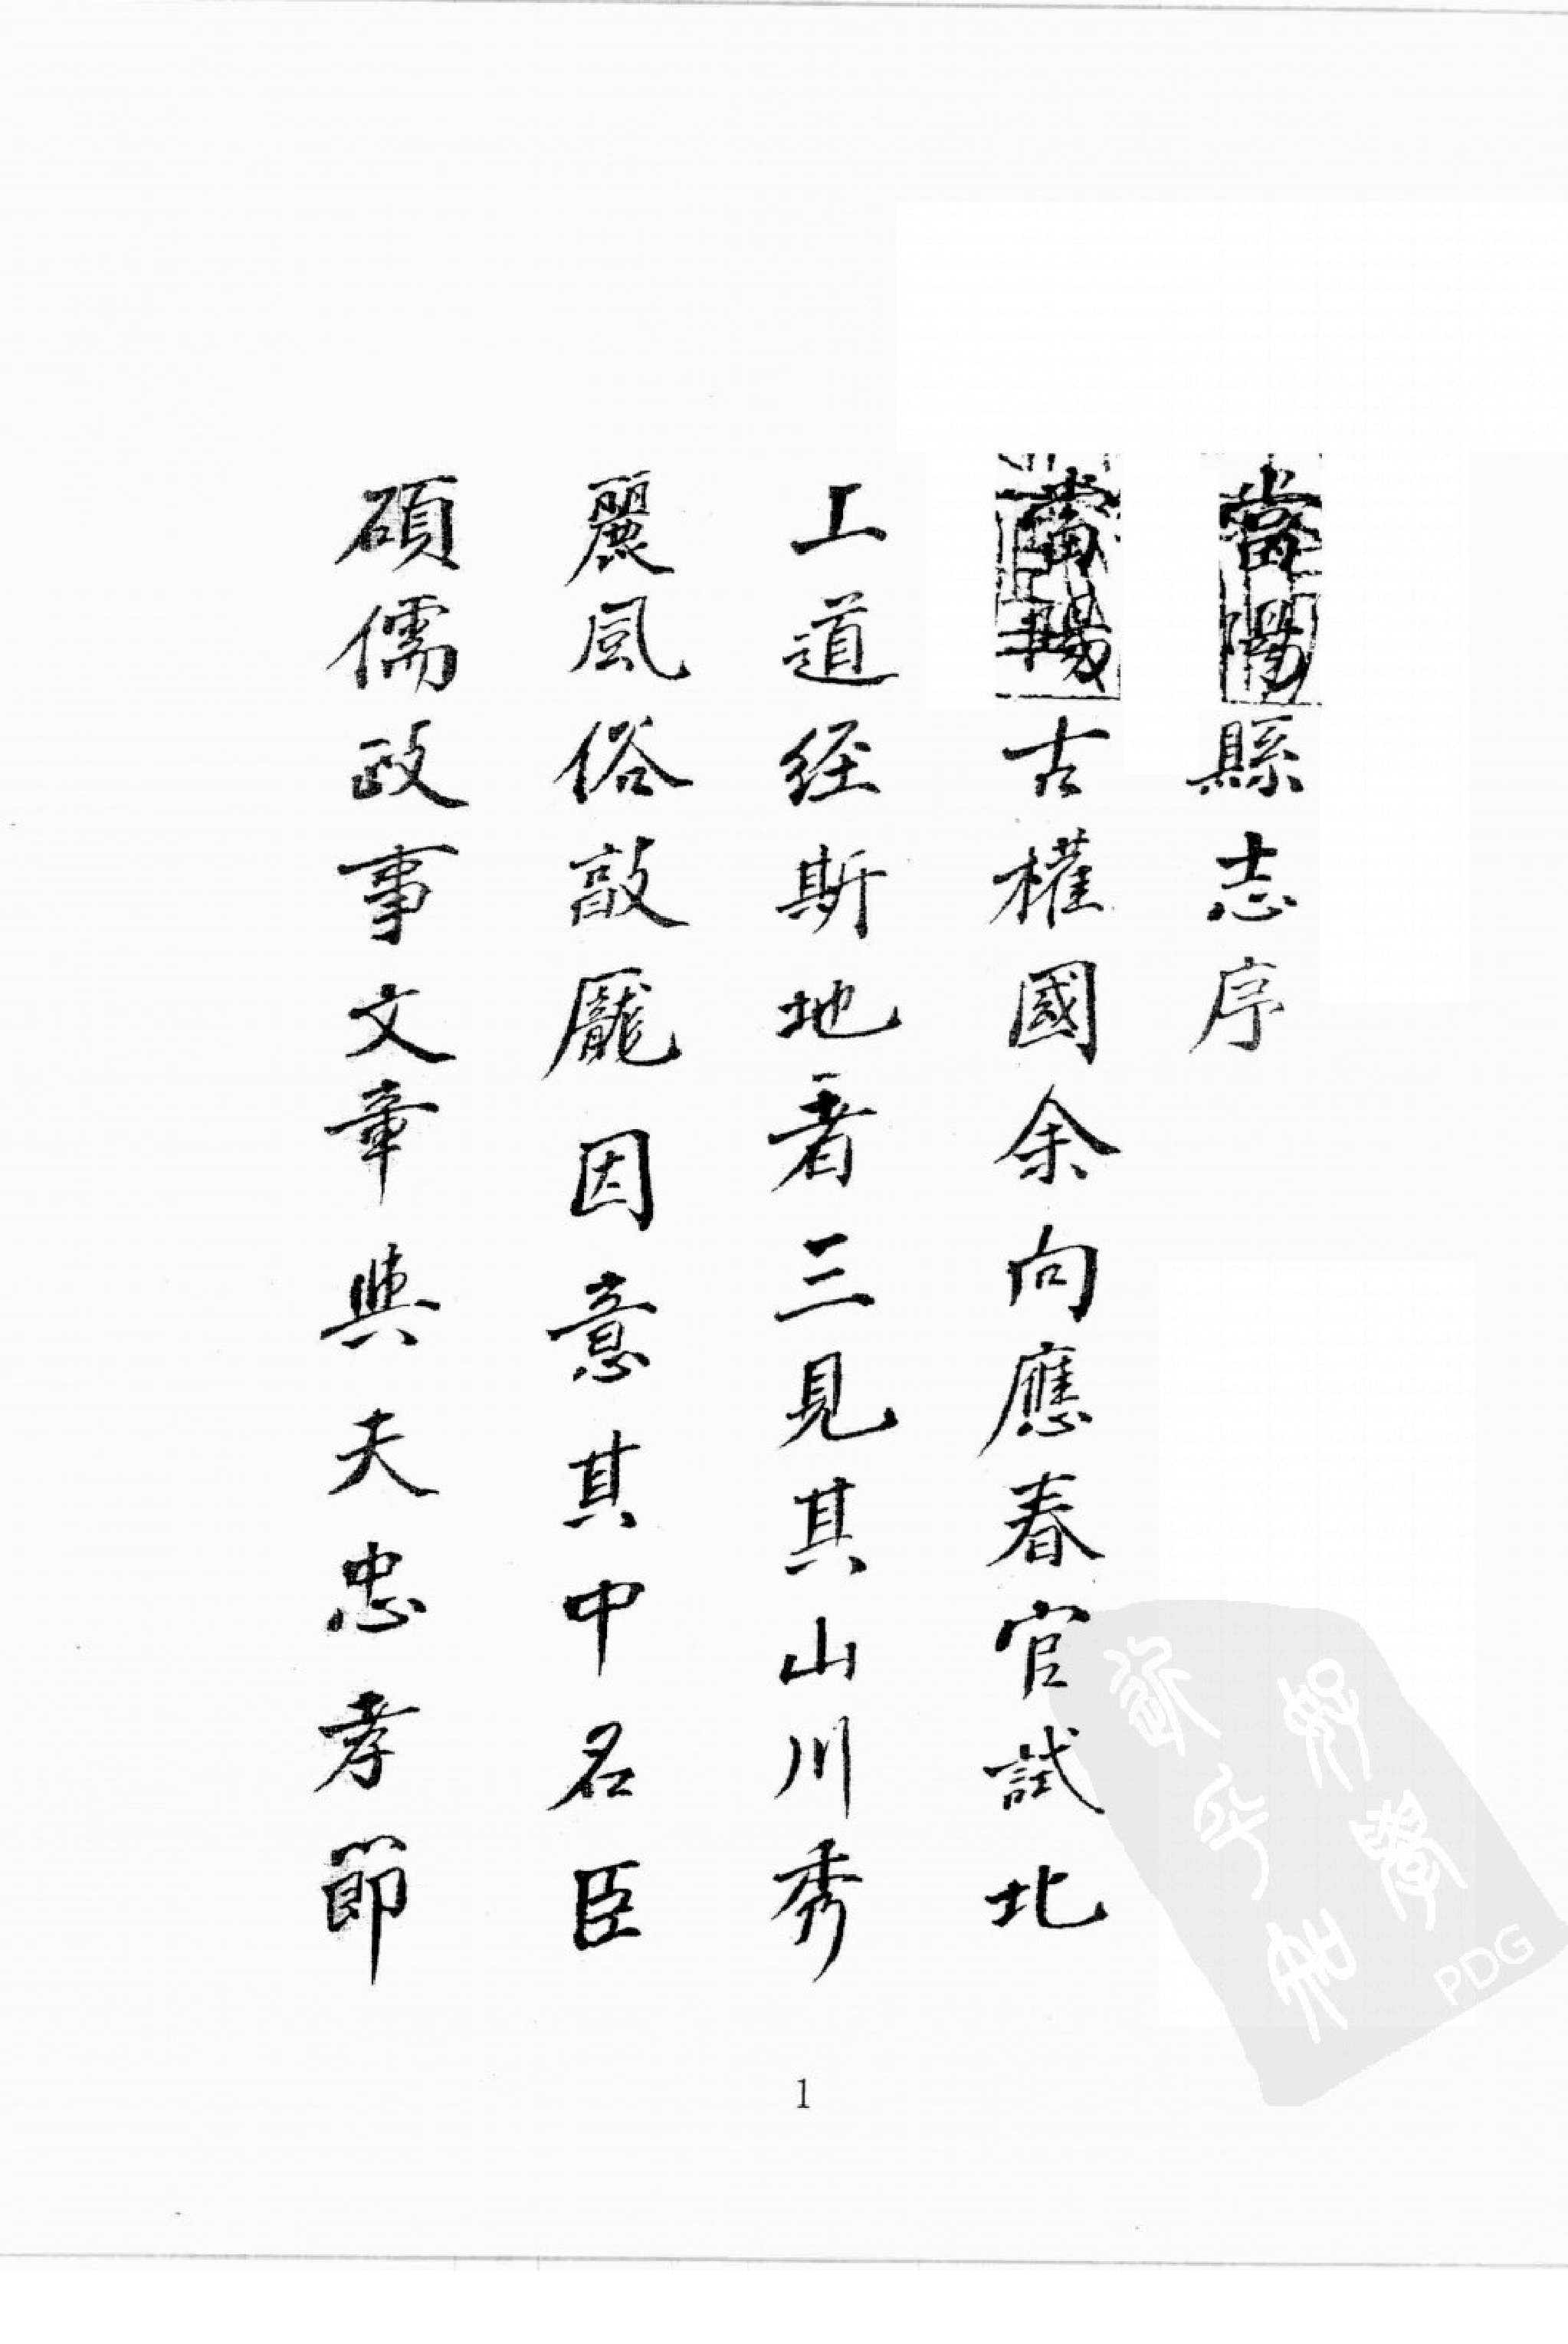 當陽縣志序
當陽古權國余向應春官試北
上道经斯地者三見其山川秀
麗風俗敦龎因意其中名臣
碩儒政事文章與夫忠孝節
1
PDG